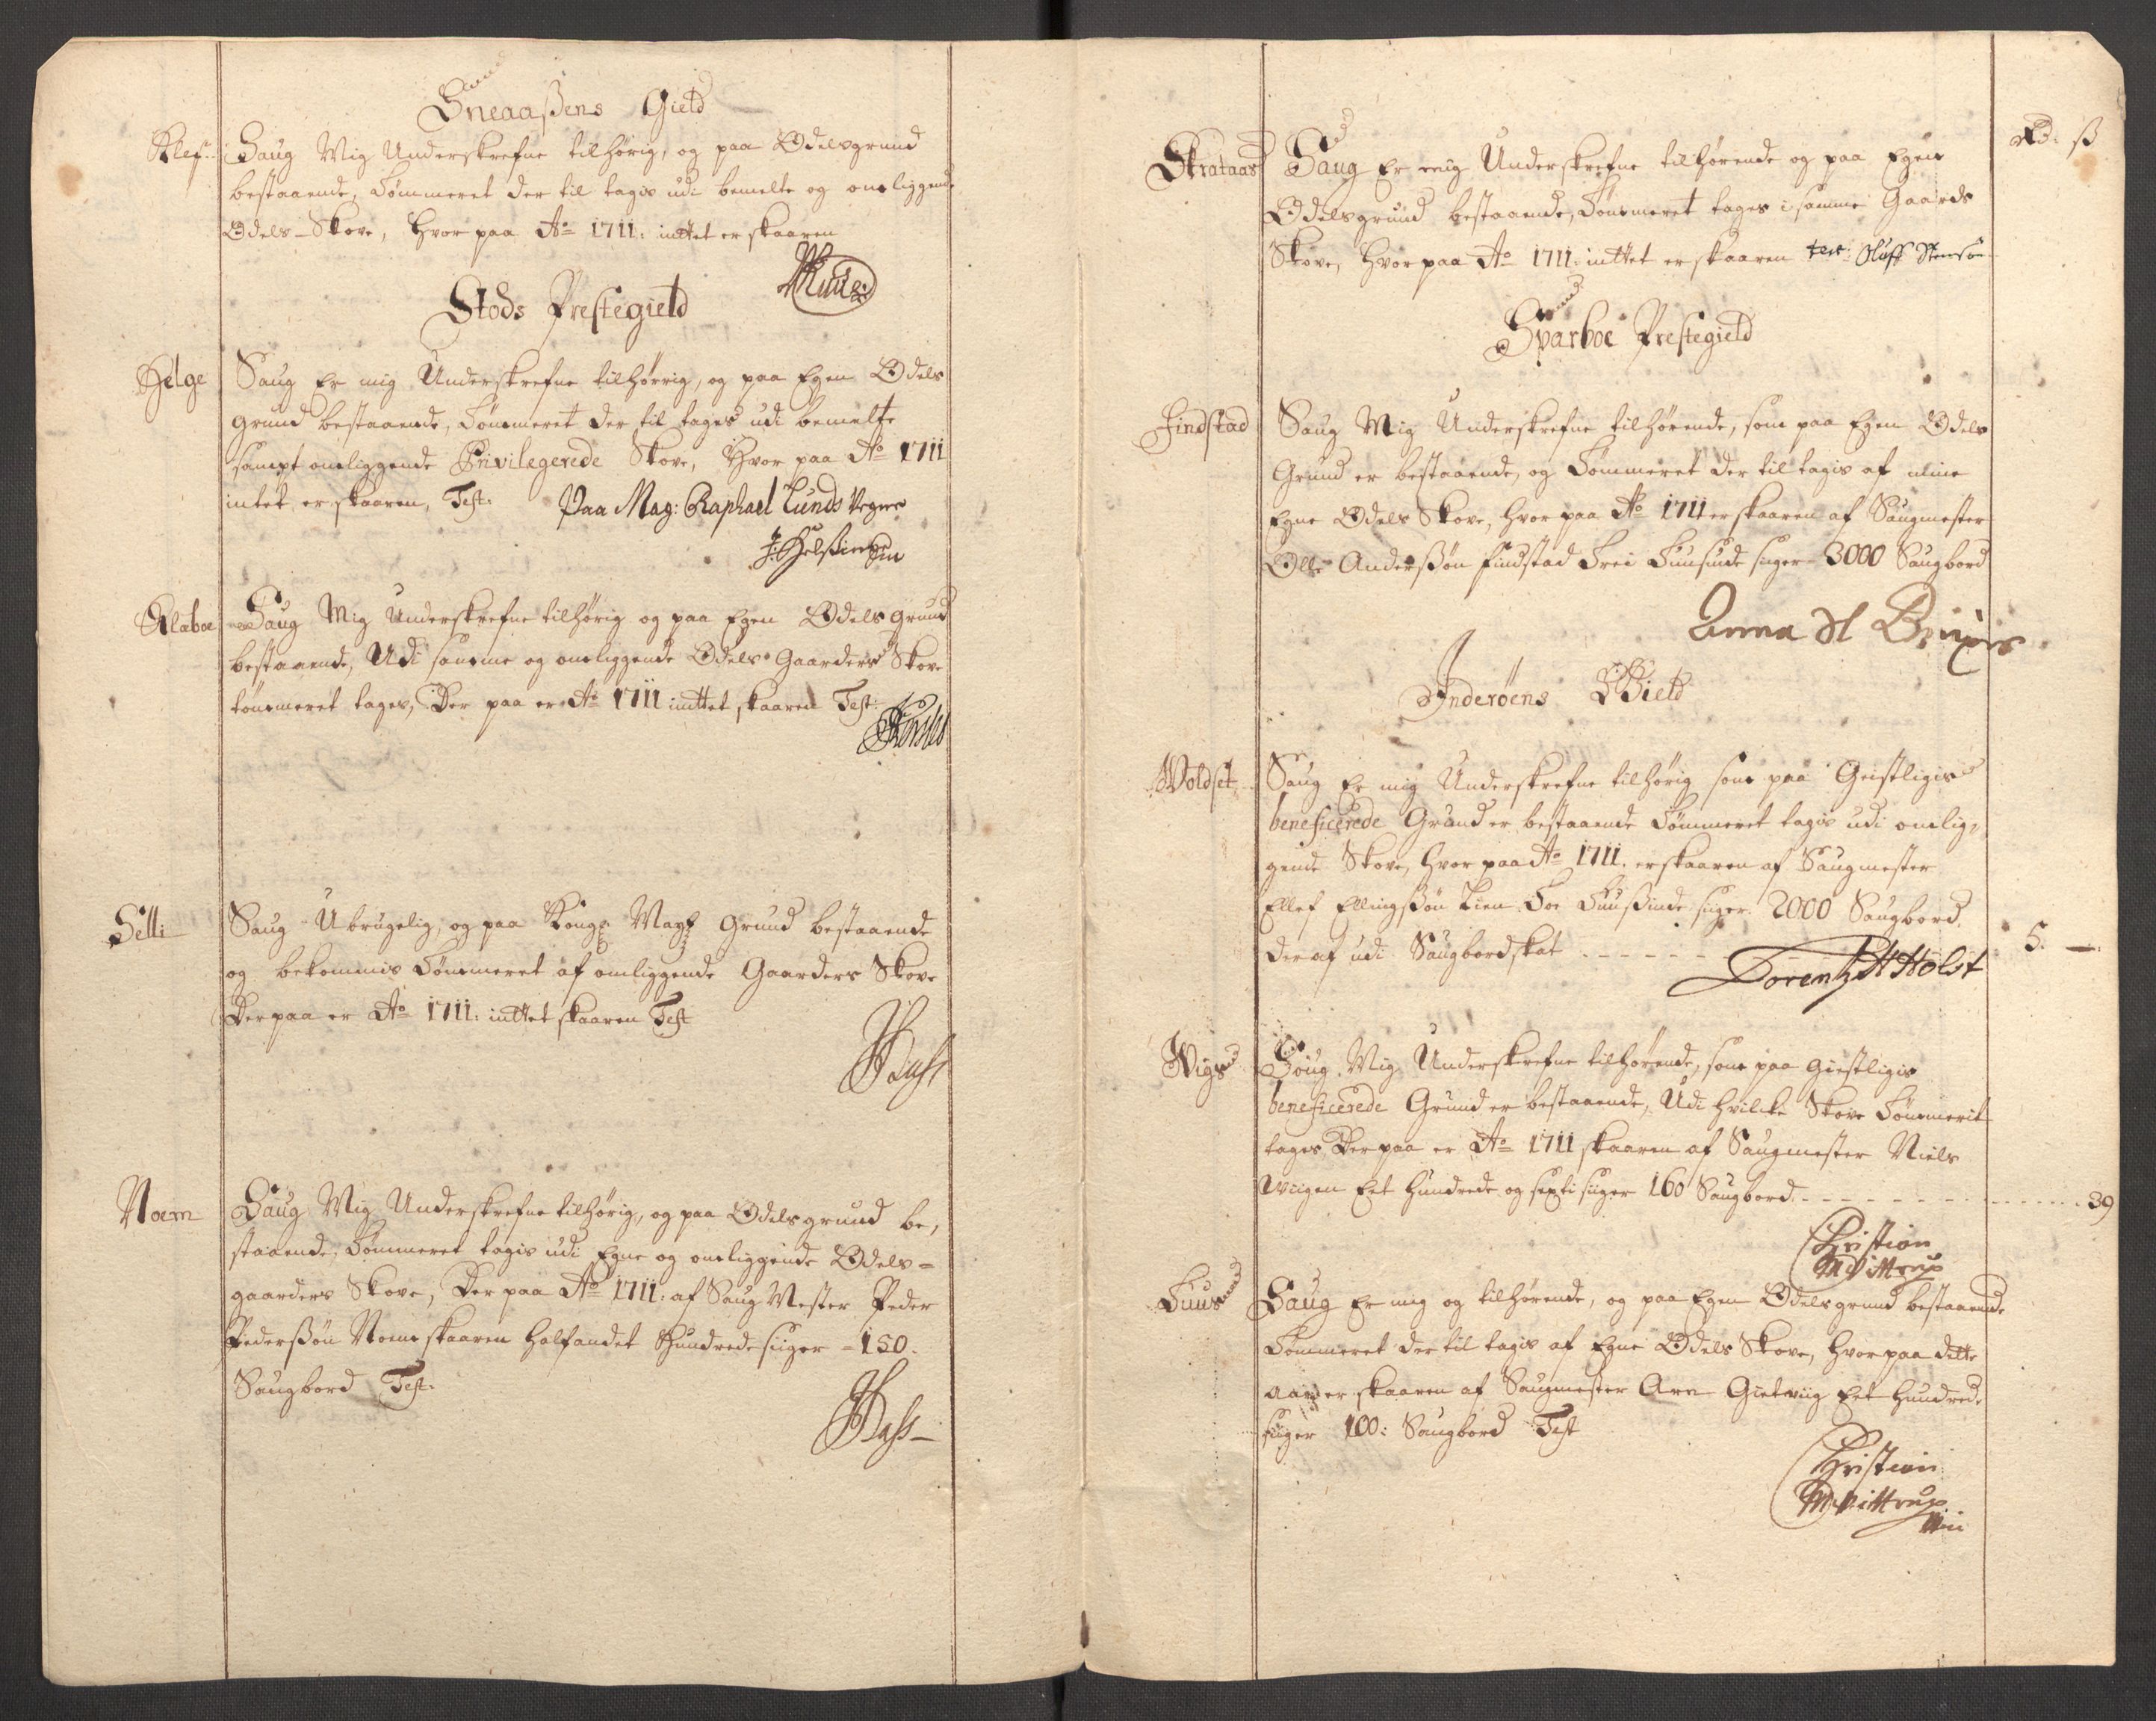 Sneaaßens Gield
Klef Saug Mig Underskrefne tilhørig, og paa Odelsgrund
bestaaende, Tømmeret der til tagis udi bemelte og omliggende
Odels-Skove, Hvor paa Ao 1711: inttet er skaaren
Stods Prestegield
Helge Saug Er mig Underskrefne tilhørrig, og paa Egen Odels
grund bestaaende, Tømmeret der til tages udi bemelte
sampt omliggende Privilegerede Skove, Hvor paa Ao 1711
intet er skaaren, Test:
Paa Mag: Raphael Lunds Vegne
Klæboe Saug Mig Underskrefne tilhørig og paa Egen Odels grund
bestaaende, Udi samme og omliggende Odels Gaarders Skove
tømmeret tages, Der paa er Ao 1711 inttet skaaren Test:
Selli Saug Ubrugelig, og paa Kong: May: Grund bestaaende
og bekommis Tømmeret af omliggende Gaarders Skove
Der paa er Ao 1711: inttet skaaren Test
Noem Saug Mig Underskrefne tilhørig, og paa Odelsgrund be,
staaende, Tømmeret tagis udi Egne og omliggende Odels-
gaarders Skove, Der paa Ao 1711: af Saug Mester Peder
Pederßøn Noem skaaren halfandet Hundrede siger - 150.
Saugbord Test:
Rd: ß
Strataas Saug Er mig Underskrefne tilhørende og paa Egen
Odelsgrund bestaaende, Tømmeret tages i samme Gaards
Skove, Hvor paa Ao 1711: inttet er skaaren test: Oluff Stensøn
Sparboe Prestegield
Findstad Saug Mig Underskrefne tilhørende, som paa Egen Odels
Grund er bestaaende, og Tømmeret der til tagis af mine
Egne Odels Skove, hvor paa Ao 1711 er skaaren af Saugmester
Olle Anderßøn Findstad Trei Tuusinde siger - 3000 Saugbord
Anna Sl
Inderöens Gield
Woldset Saug Er mig Underskrefne tilhørig som paa Geistligis
beneficerede Grund er bestaaende Tømmeret tagis udi omlig,
gende Skove, hvor paa Ao 1711. er skaaren af Saugmester
Ellef Ellingßøn Lien Toe Tuußinde siger: 2000 Saugbord
der af udi Saugbordskat - - - - - - 5. —
Lorentz H Holst
Wigs Saug Mig Underskrefne tilhørende, som paa Giestligis
beneficerede Grund er bestaaende, Udi hvilcke Skove Tømmerit
tages Der paa er Ao 1711 skaaren af Saugmester Niels
Wiigen Eet hundrede og sexti siger 160 Saugbord - - - - - - 39
Christian
Wittrup
Tuus Saug Er mig og tilhørende, og paa Egen Odelsgrund bestaaende
Tømmeret der til tagis af Egne Odels Skove, Hvor paa dette
aar er skaaren af Saugmester Arn Gietwiig Eet Hundrede
siger 100: Saugbord Test
Christian
Wittrup